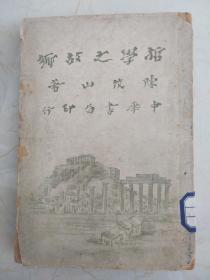 哲學之故鄉
陳筑山著
中華書局印行